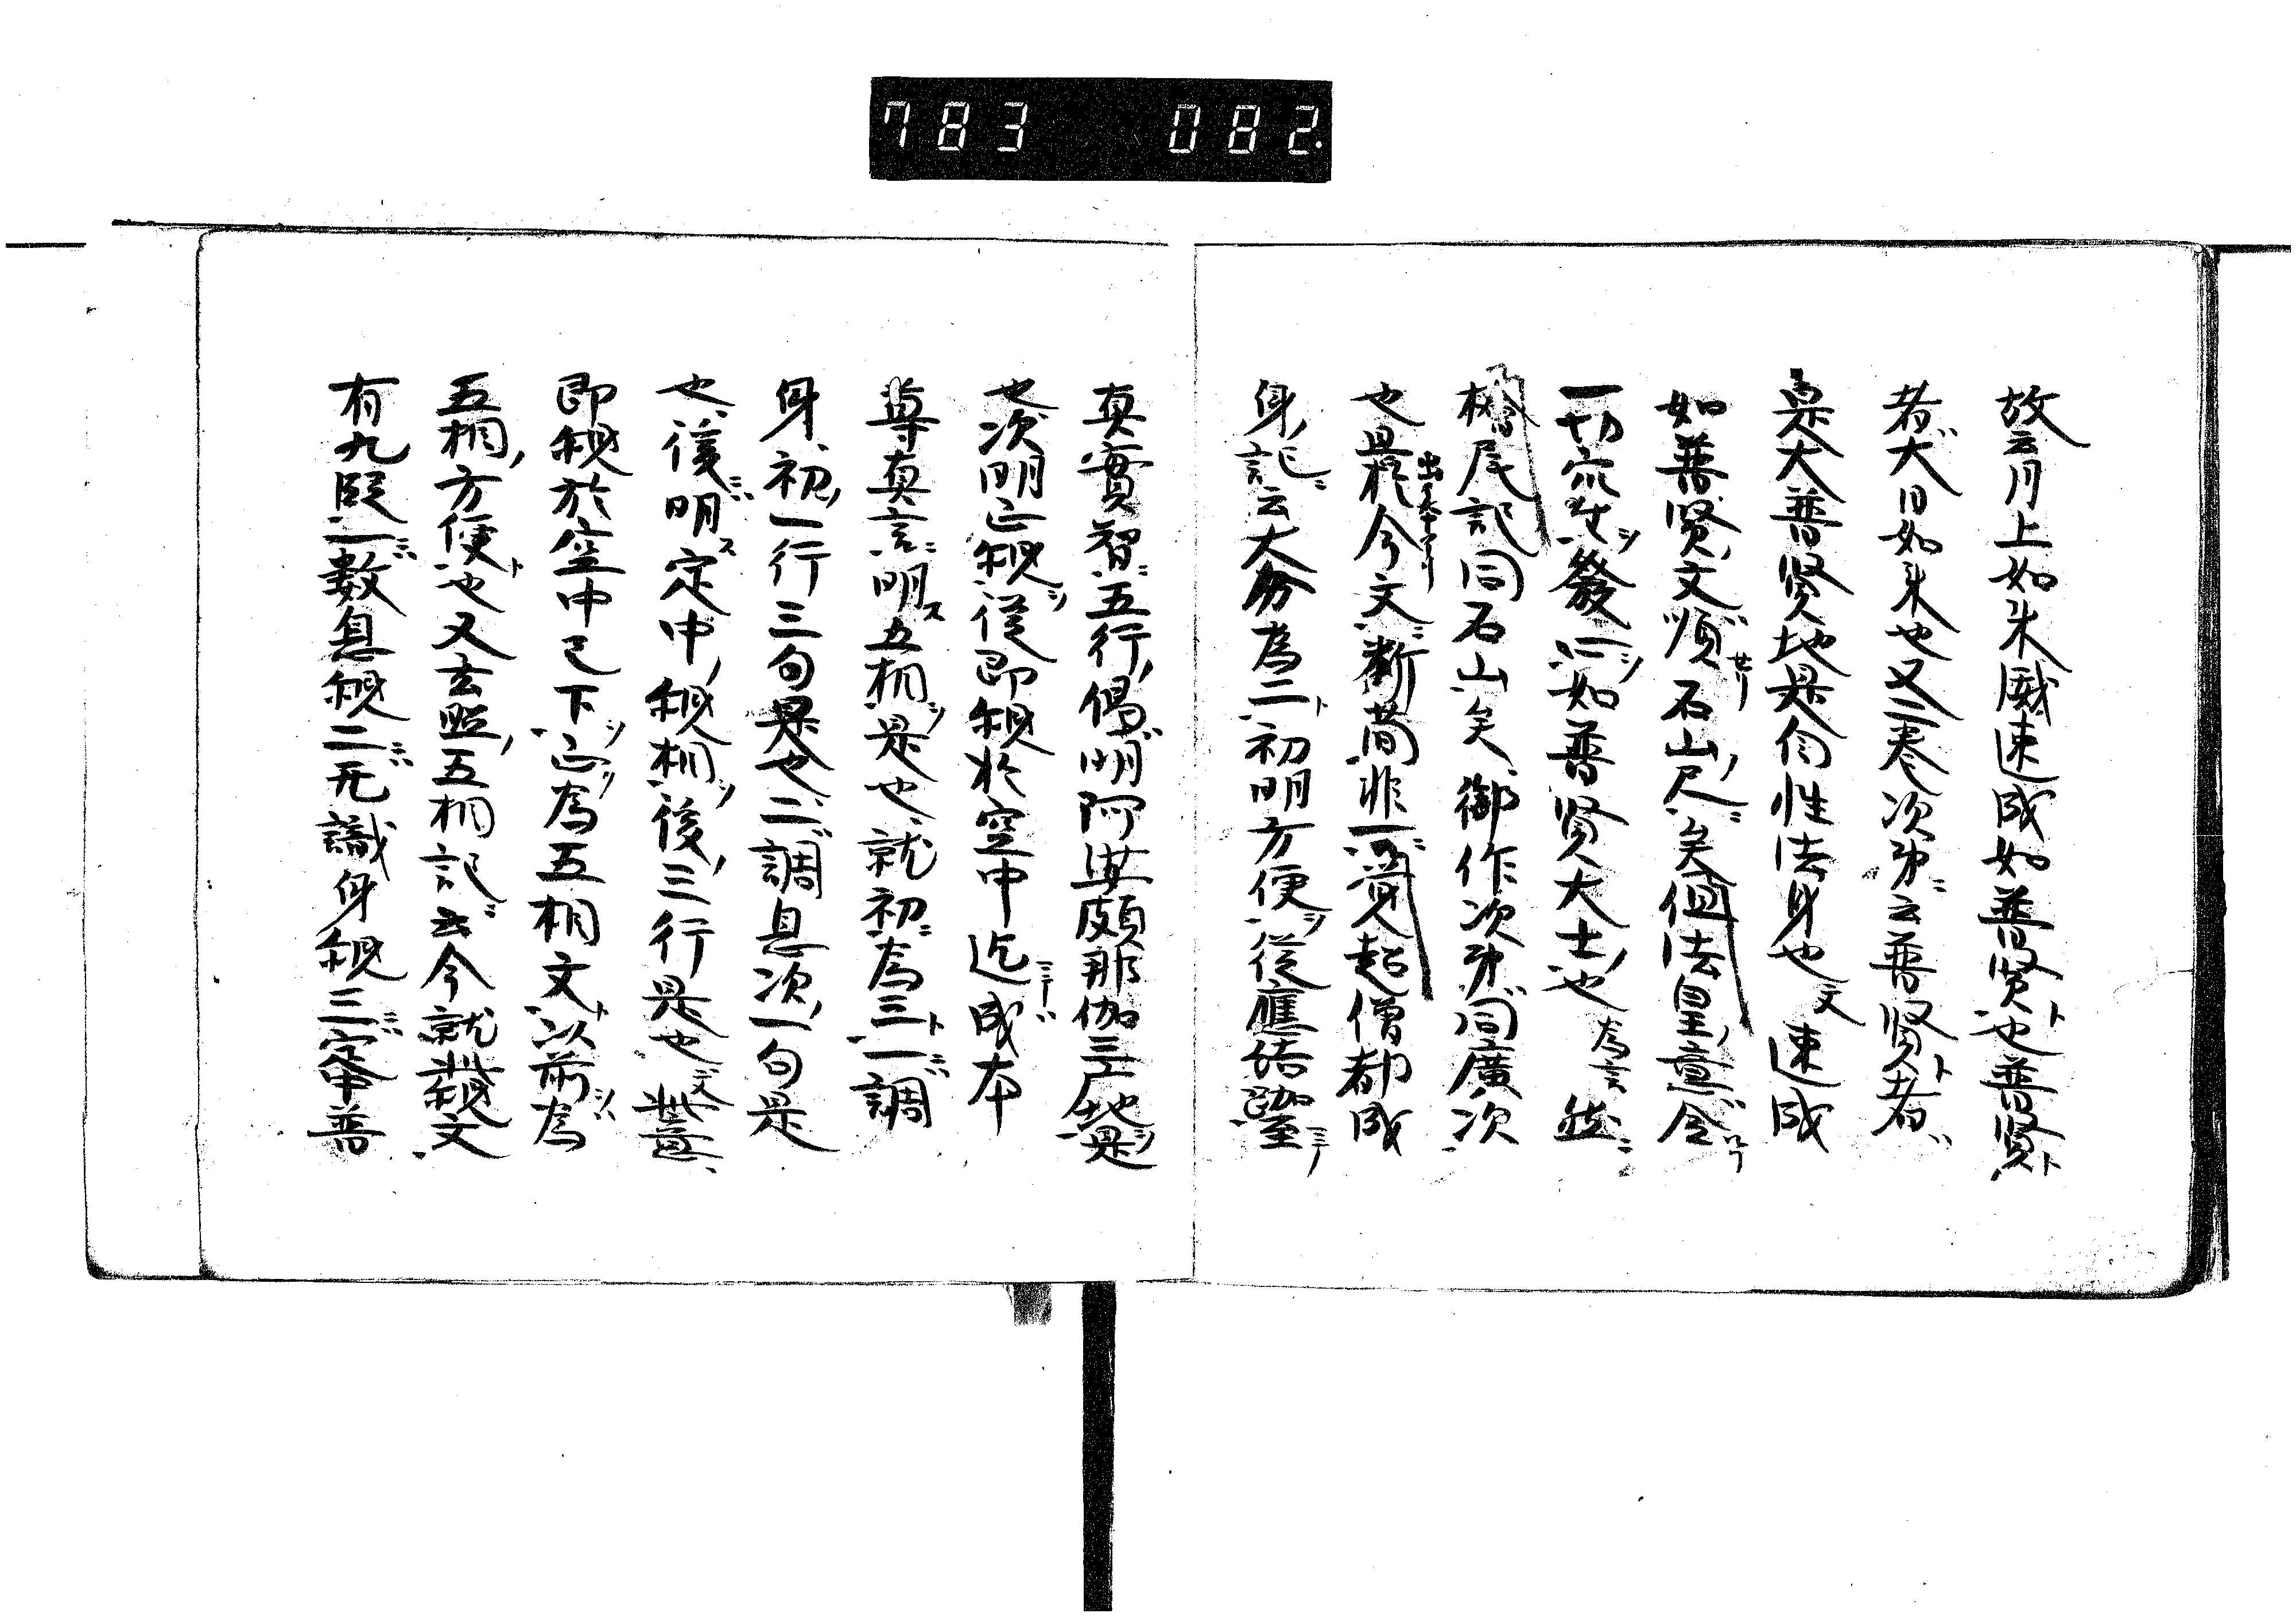 783 082.
故云月上如来威速成如普賢也普賢
者大日如来也又二巻次第云普賢者
是大普賢地是自性法身也文速成
如普賢文順石山尺矣但法皇意令
一切衆生發心如普賢大士也為言然
檜尾記同石山矣御作次第同廣次
也是於今文断簡非一覚超僧都成
身記云大分為二初明方便從應結跏至
真實智五行偈明阿娑頗那伽三摩地是
也次明正観從即観於空中迄成本
尊真言明五相是也就初為三一調
身初一行三句是也二調息次一句是
也後明定中観相後三行是也文此意
即観於空中已下正為五相文以前為
五相方便也又玄照五相記云今就此観文
有九段一数息観二无識身観三定中普